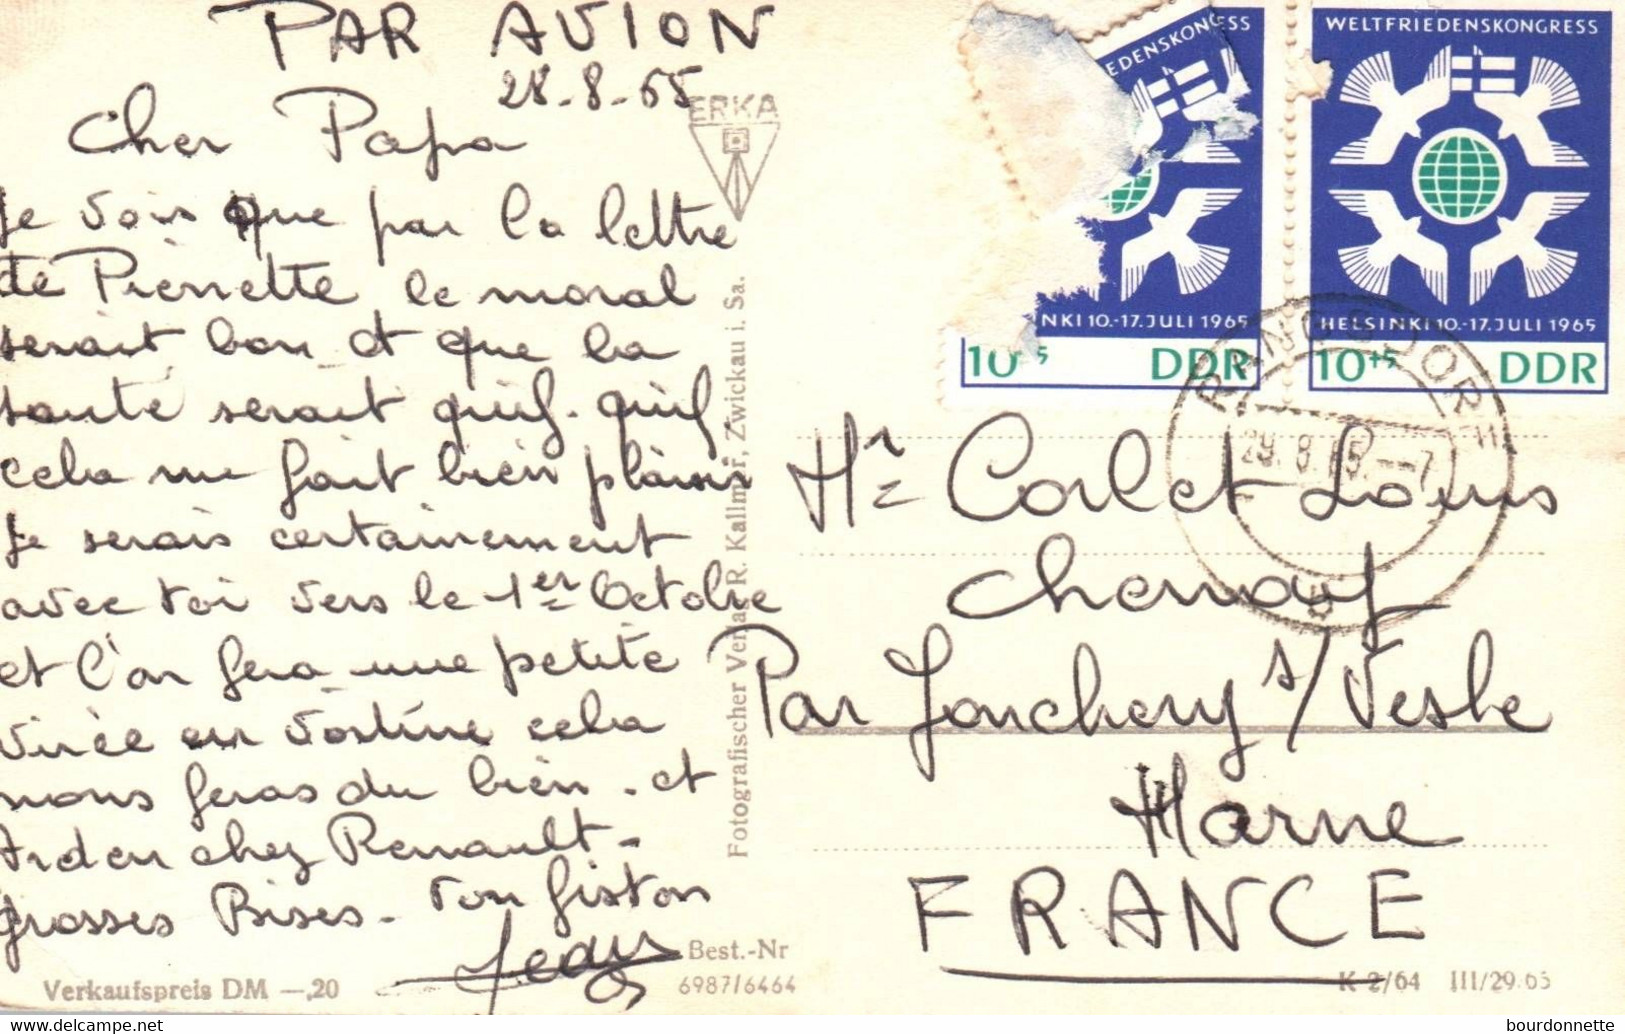 PAR AVION
28-8-65
Cher Papa
Je vois que par la lettre
de Pierrette le moral
serait bon et que la
santé serait quif-quif
cela me fait bien plaisir
Je serais certainement
avec toi vers le 1er Octobre
et l'on fera une petite
virée en
cela
nous feras du bien. et
chez Renault-
grosses Bises- Ton fiston
Jean
Verkaufspreis DM —,20
ERKA
Fotografischer Verlag R. Kallmer, Zwickau i. Sa.
Best.-Nr
6987/6464
EDENSKONGRESS
NKI 10.-17. JULI 1965
10+5 DDR
WELTFRIEDENSKONGRESS
HELSINKI 10.-17. JULI 1965
10+5 DDR
RANGSDORF
29.8.65.--7
Mr Corlet Louis
Chenay
Par Jonchery s/Vesle
Marne
FRANCE
K 2/64 III/29.65
bourdonnette